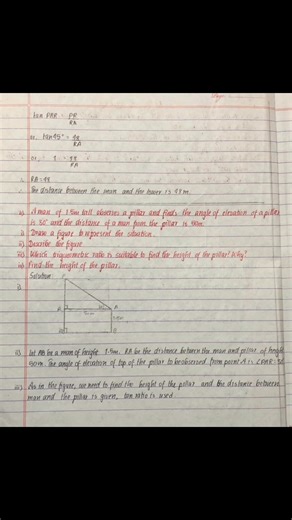 tan PAR = PR
RA
or, tan 45° =
RA
or, 1 =
RA
∴ RA =
∴ The distance between the man and the tower is
b) A man of 1.5m tall observes a pillar and finds the angle of elevation of a pillar
is and the distance of a man from the pillar is
i) Draw a figure to represent the situation.
ii) Describe the figure
iii) Which trigonometric ratio is suitable to find the height of the pillar? Why?
iv) Find the height of the pillar.
Solution:
i)
ii) Let AB be a man of height 1.5m. RA be the distance between the man and pillar of height
The angle of elevation of top of the pillar to be observed from point A is
iii) As in the figure, we need to find the height of the pillar and the distance between
man and the pillar is given, tan ratio is used